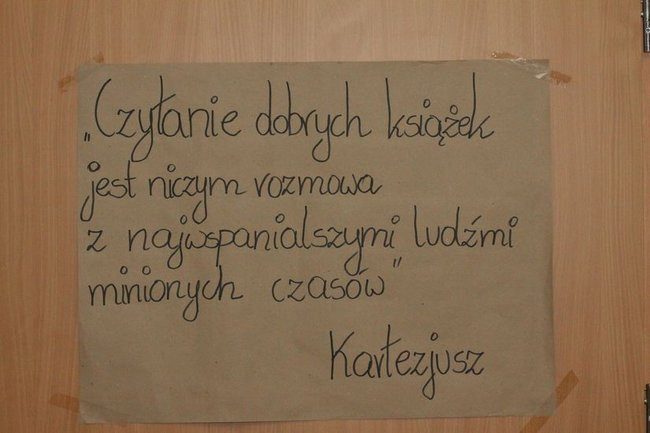 „Czytanie dobrych książek
jest niczym rozmowa
z najwspanialszymi ludźmi
minionych czasów”
Kartezjusz